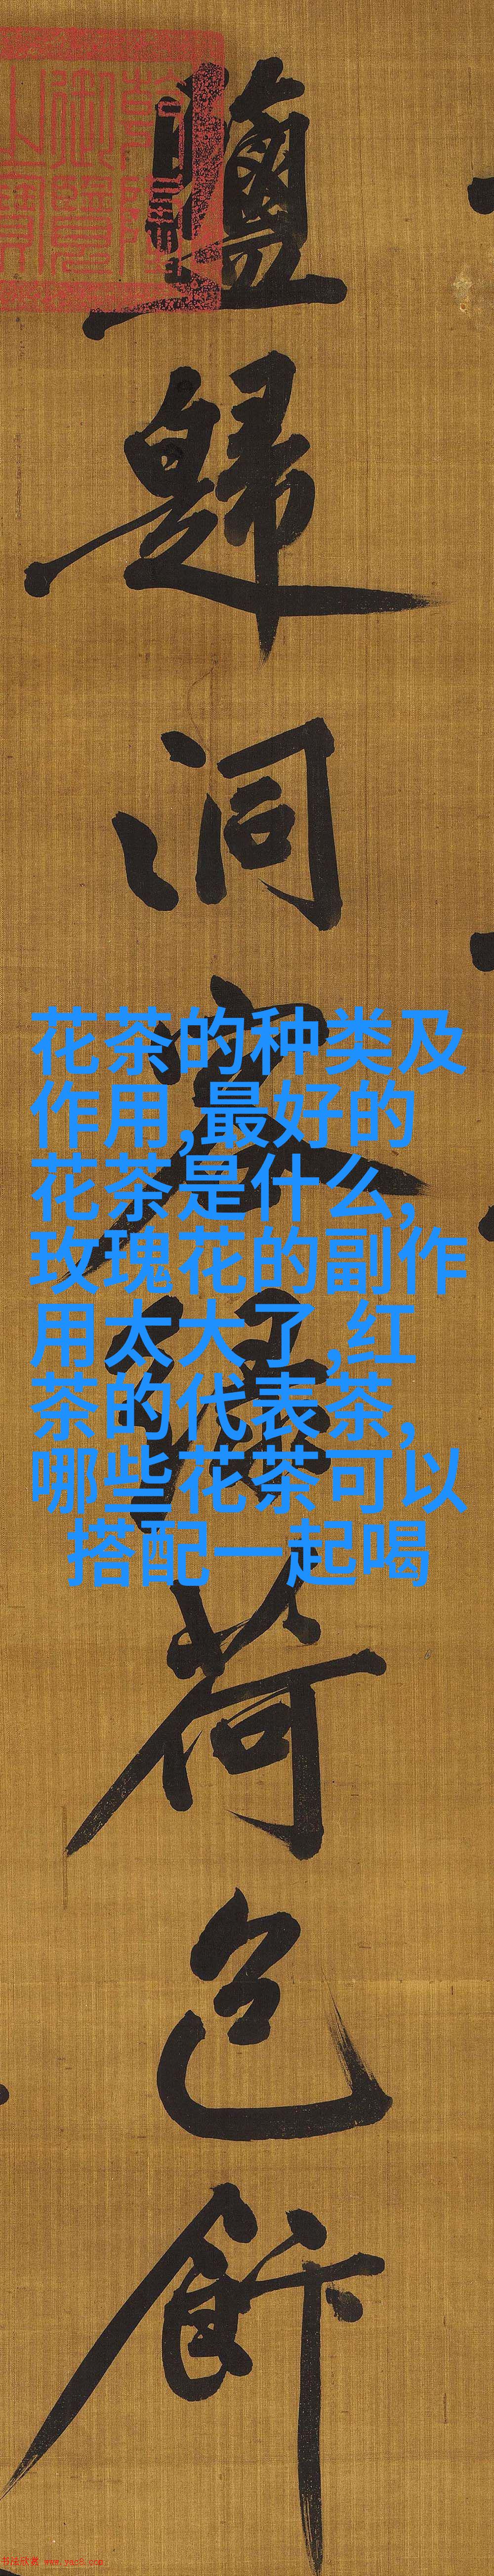 鹽歸洞客澤荷包飯
花茶的种类及
作用,最好的
花茶是什么,
玫瑰花的副作
用太大了,红
茶的代表茶,
哪些花茶可以
搭配一起喝
书法欣赏 www.yac8.com